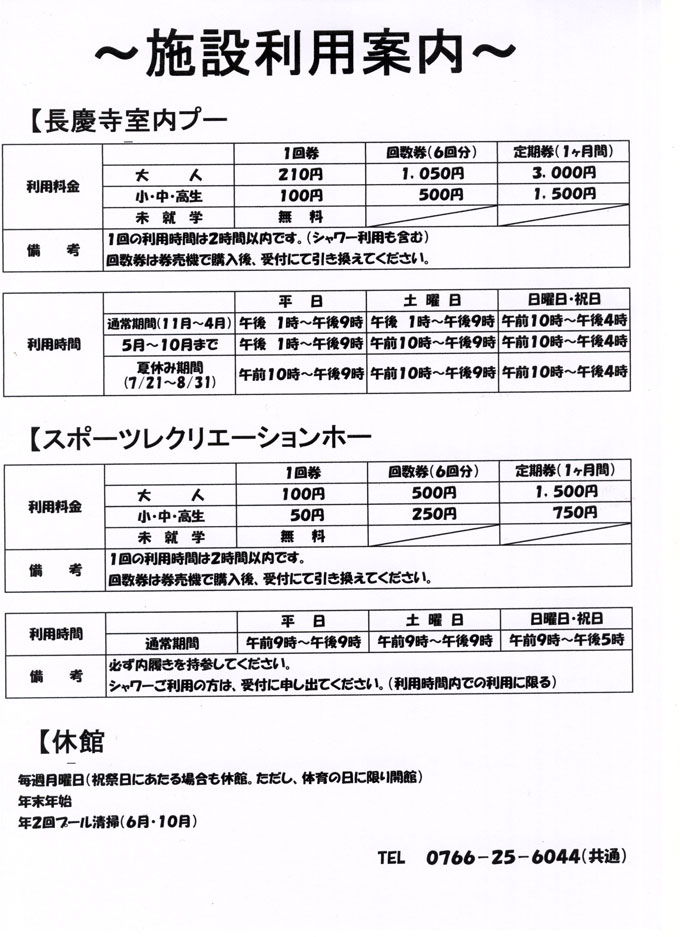 ～施設利用案内～
【長慶寺室内プー
1回券 回数券(6回分) 定期券(1ヶ月間)
利用料金 大 人 210円 1.050円 3.000円
小・中・高生 100円 500円 1.500円
未 就 学 無 料
備 考 1回の利用時間は2時間以内です。(シャワー利用も含む)
回数券は券売機で購入後、受付にて引き換えてください。
平 日 土 曜 日 日曜日・祝日
利用時間 通常期間(11月～4月) 午後 1時～午後9時 午後 1時～午後9時 午前10時～午後4時
5月～10月まで 午後 1時～午後9時 午前10時～午後9時 午前10時～午後4時
夏休み期間
(7/21～8/31) 午前10時～午後9時 午前10時～午後9時 午前10時～午後4時
【スポーツレクリエーションホー
1回券 回数券(6回分) 定期券(1ヶ月間)
利用料金 大 人 100円 500円 1.500円
小・中・高生 50円 250円 750円
未 就 学 無 料
備 考 1回の利用時間は2時間以内です。
回数券は券売機で購入後、受付にて引き換えてください。
利用時間 平 日 土 曜 日 日曜日・祝日
通常期間 午前9時～午後9時 午前9時～午後9時 午前9時～午後5時
備 考 必ず内履きを持参してください。
シャワーご利用の方は、受付に申し出てください。(利用時間内での利用に限る)
【休館
毎週月曜日(祝祭日にあたる場合も休館。ただし、体育の日に限り開館)
年末年始
年2回プール清掃(6月・10月)
TEL 0766-25-6044(共通)